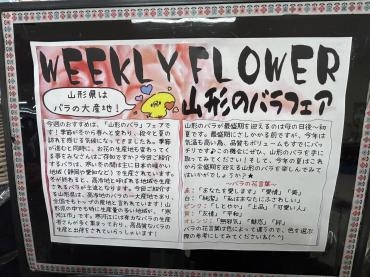 WEEKLY FLOWER
山形県は
バラの大産地！
山形のバラフェア
今週のおすすめは、「山形のバラ」フェアで
す！季節が冬から春へと変わり、段々と夏の
訪れを感じる気候になってきましたね。季節
が進むと同時に、お花の生産地も変わってく
る事をみなさんはご存知ですか？今回ご紹介
するバラは、寒い冬の間は主に日本の暖かい
地域（静岡や愛知など）で生産されています。
冬が終わると、高冷地と呼ばれる地域で生産
されるバラが主流となります。今回ご紹介す
る山形県は、高冷地のバラの一大産地であり、
全国でもトップの産地と言われています！山
形県の中でも特に生産量の多い地域が、「寒
河江市」です。寒河江には有力なバラの生産
者さんが多く集まっており、高品質なバラの
生産と出荷をされていらっしゃいます！
山形のバラが最盛期を迎えるのは母の日後～初
夏です。最盛期にさしかかる前ですが、今年は
気温も高い為、品質もボリュームもすでにバッ
チリですよこの機会にぜひ、山形のバラを手に
取ってみてください！そして、今年の夏はこれ
から全盛期を迎える山形のバラを楽しんでみて
はいかがでしょうか？★
～バラの花言葉～
赤：「あなたを愛します」「愛情」「美」
白：「純潔」「私はあなたにふさわしい」
ピンク：「しとやか」「上品」「可愛い人」
黄：「友情」「平和」
オレンジ：「無邪気」「魅惑」「絆」
バラの花言葉は色によって違うので、色を選ぶ
際の参考にしてみてください(^^)